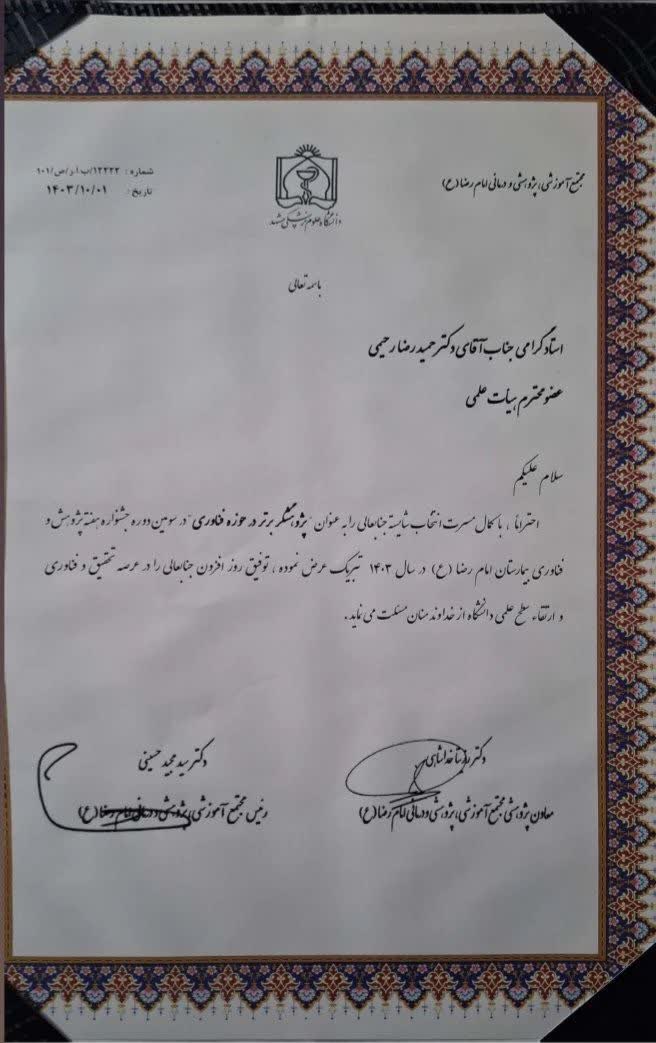 مجتمع آموزشی، پژوهشی و درمانی امام رضا (ع)
دانشگاه علوم پزشکی مشهد
شماره : ۱۲۲۲۲/ب ا ر/ص/۱۰۱
تاریخ : ۱۴۰۳/۱۰/۰۱
باسمه تعالی
استاد گرامی جناب آقای دکتر حمید رضا رحیمی
عضو محترم هیأت علمی
سلام علیکم
احتراماً ، با کمال مسرت انتخاب شایسته جنابعالی را به عنوان "پژوهشگر برتر در حوزه فناوری" در سومین دوره جشنواره هفته پژوهش و
فناوری بیمارستان امام رضا (ع) در سال ۱۴۰۳ تبریک عرض نموده ، توفیق روز افزون جنابعالی را در عرصه تحقیق و فناوری
و ارتقاء سطح علمی دانشگاه از خداوند منان مسئلت می نماید .
دکتر
معاون پژوهشی مجتمع آموزشی، پژوهشی و درمانی امام رضا (ع)
دکتر سید مجید حسینی
رئیس مجتمع آموزشی، پژوهشی و درمانی امام رضا (ع)